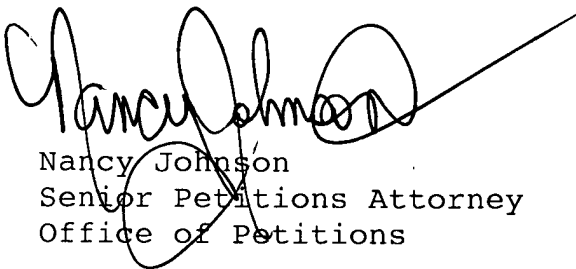 Nancy Johnson
Nancy Johnson
Senior Petitions Attorney
Office of Petitions